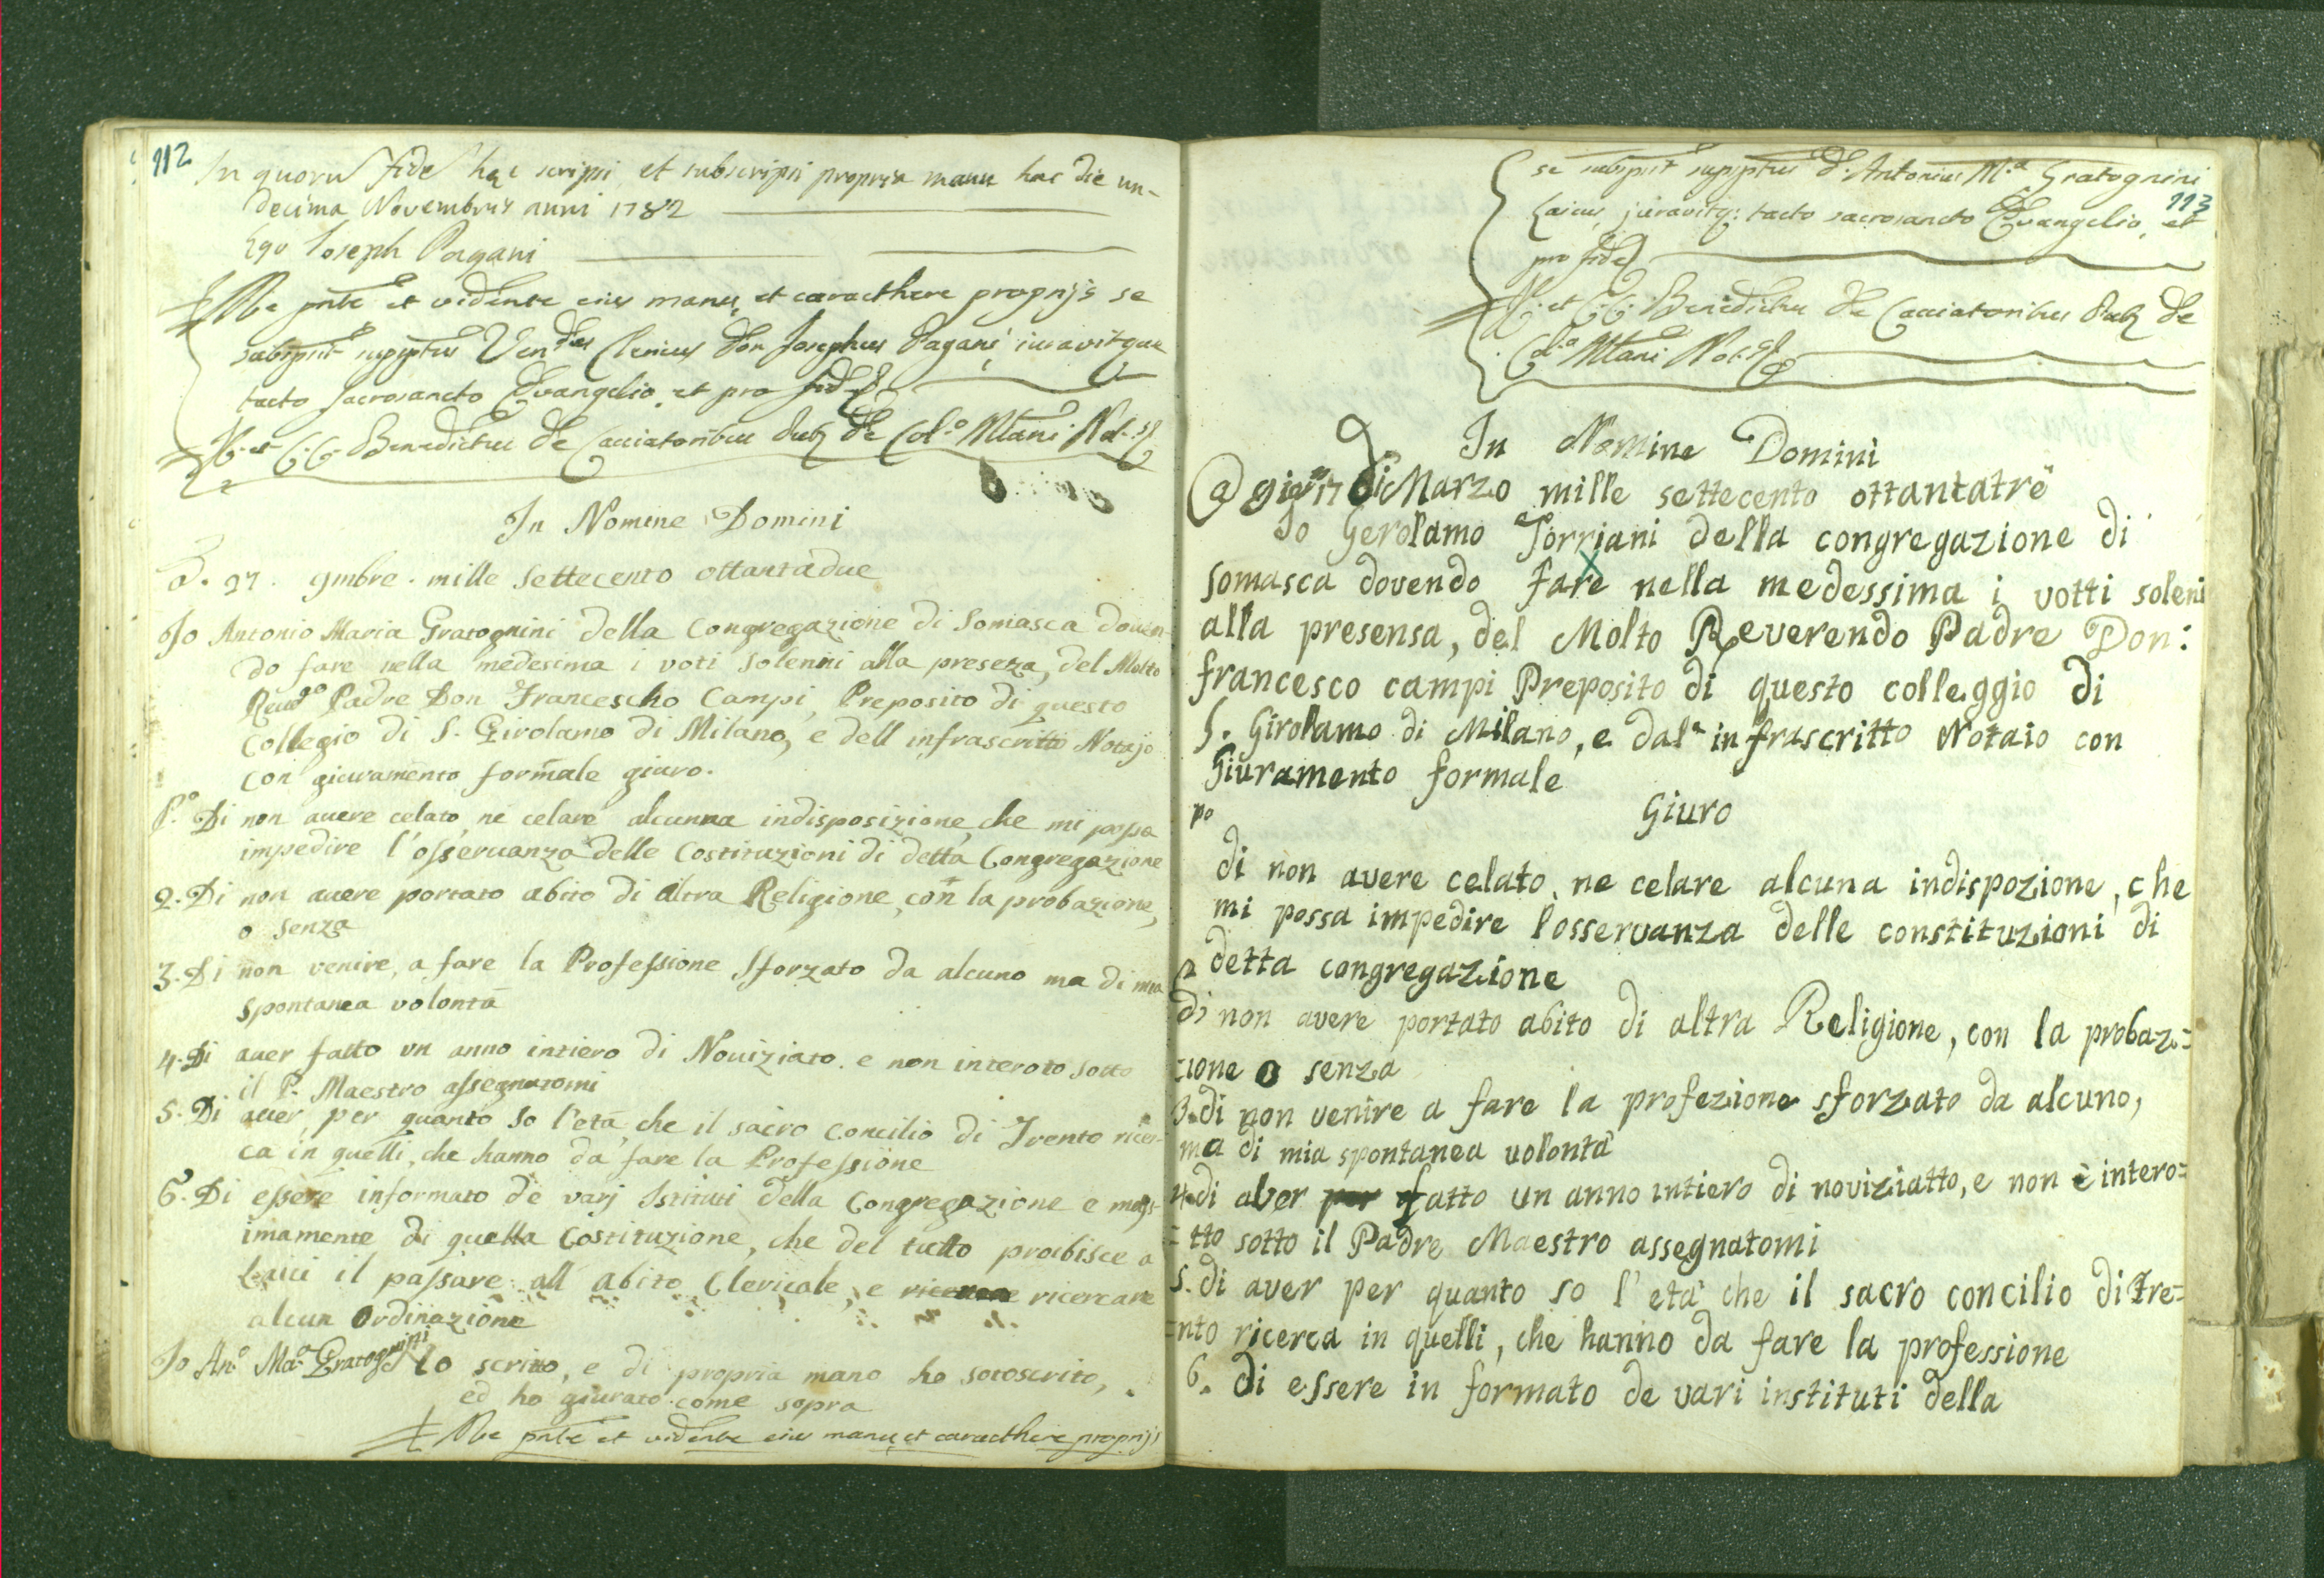 112
In quoru fide hec scripsi et subscripsi propria manu hac die un-
decima Novembris anni 1782
Ego Joseph Pagani
Me pnte et vidente eius manu, et caracthere proprijs se
subspsit supsptus Vendus Clericus Don Josephus Pagani iuravitque
tacto Sacrosancto Evangelio, et pro fide
Benedictus de Cacciatoribus Pub de Col.o Mlani Not.
In Nomine Domini
A. 27. 9mbre. mille settecento ottantadue
Io Antonio Maria Gratognini della Congregazione di Somasca doven-
do fare nella medesima i voti solenni alla preseza, del Molto
Reudo Padre Don Francescho Campi, Preposito di questo
Collegio di S. Girolamo di Milano, e dell infrascritto Notajo
con giuramento formale giuro.
P.o Di non auere celato, ne celare alcunna indisposizione, che mi possa
impedire l'osseruanza delle Costituzioni di detta Congregazione
2. Di non auere portato abito di altra Religione, con la probazione,
o senza
3. Di non venire, a fare la Professione sforzato da alcuno ma di mia
spontanea volontà
4. Di auer fatto un anno intiero di Nouiziato. e non interoto sotto
il P. Maestro assegnatomi
5. Di auer, per quanto so l'età, che il sacro Concilio di Trento ricer-
ca in quelli, che hanno da fare la Professione
6. Di essere informato de varj Istituti della Congregazione e mass-
imamente di quella Costituzione, che del tutto proibisce a
Laici il passare all abito Clericale, e ricercare
alcun Ordinazione
Io An.o Ma.a Gratognini lo scritto, e di propria mano ho sotoscrito,
ed ho giurato come sopra
Me pnte et vidente eius manu, et caracthere proprijs
113
se subspsit supsptus D. Antonius M.a Gratognini
Laicus, juravitq: tacto sacrosancto Evangelio, et
pro fide
Benedictus de Cacciatoribus Pub de
Col.o Mlani Not.
In Nomine Domini
a giorn 17 di Marzo mille settecento ottantatrè
Io Gerolamo Torriani della congregazione di
somasca dovendo fare nella medessima i votti soleni
alla presensa, del Molto Reverendo Padre Don:
francesco campi Preposito di questo colleggio di
S. Girolamo di Milano, e dal' infrascritto Notaio con
Giuramento formale
Giuro
po
di non avere celato, ne celare alcuna indispozione, che
mi possa impedire l'osservanza delle constituzioni di
detta congregazione
2 di non avere portato abito di altra Religione, con la probazi=
=ione o senza
3. di non venire a fare la profezione sforzato da alcuno,
ma di mia spontanea volontà
4. di aver per fatto un anno intiero di noviziatto, e non è intero=
=tto sotto il Padre Maestro assegnatomi
5. di aver per quanto so l'età che il sacro concilio di Tre=
=nto ricerca in quelli, che hanno da fare la professione
6. di essere in formato de vari instituti della